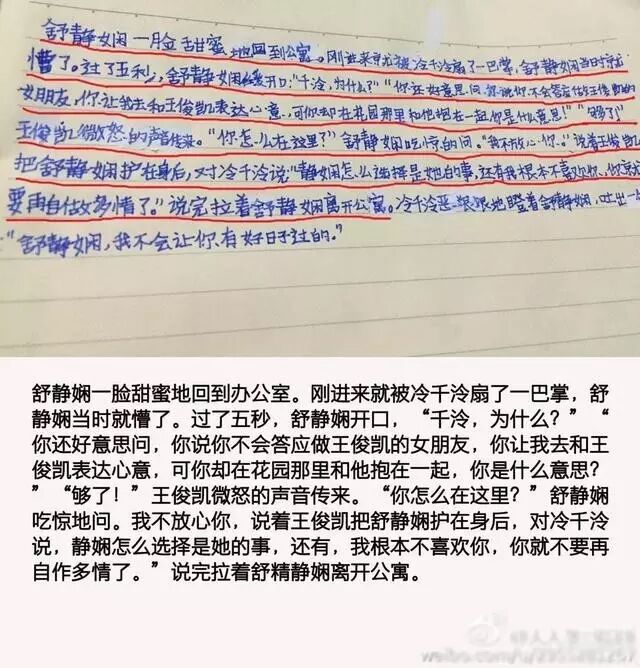 舒静娴一脸甜蜜地回到公寓。刚进来就被冷千泠扇了一巴掌,舒静娴当时就
懵了。过了五秒,舒静娴开口:"千泠,为什么?""你还好意思问,你说你不会答应做王俊凯的
女朋友,你让我去和王俊凯表达心意,可你却在花园那里和他抱在一起,你是什么意思!""够了!"
王俊凯微怒的声音传来。"你怎么在这里?"舒静娴吃惊的问。"我不放心你。"说着王俊凯
把舒静娴护在身后,对冷千泠说"静娴怎么选择是她的事,还有我根本不喜欢你,你就
要再自作多情了。"说完拉着舒静娴离开公寓。冷千泠恶狠狠地瞪着舒静娴,吐出一
"舒静娴,我不会让你有好日子过的。"
舒静娴一脸甜蜜地回到办公室。刚进来就被冷千泠扇了一巴掌,舒
静娴当时就懵了。过了五秒,舒静娴开口,“千泠,为什么?”“
你还好意思问,你说你不会答应做王俊凯的女朋友,你让我去和王
俊凯表达心意,可你却在花园那里和他抱在一起,你是什么意思?
”“够了!”王俊凯微怒的声音传来。“你怎么在这里?”舒静娴
吃惊地问。我不放心你,说着王俊凯把舒静娴护在身后,对冷千泠
说,静娴怎么选择是她的事,还有,我根本不喜欢你,你就不要再
自作多情了。”说完拉着舒精静娴离开公寓。